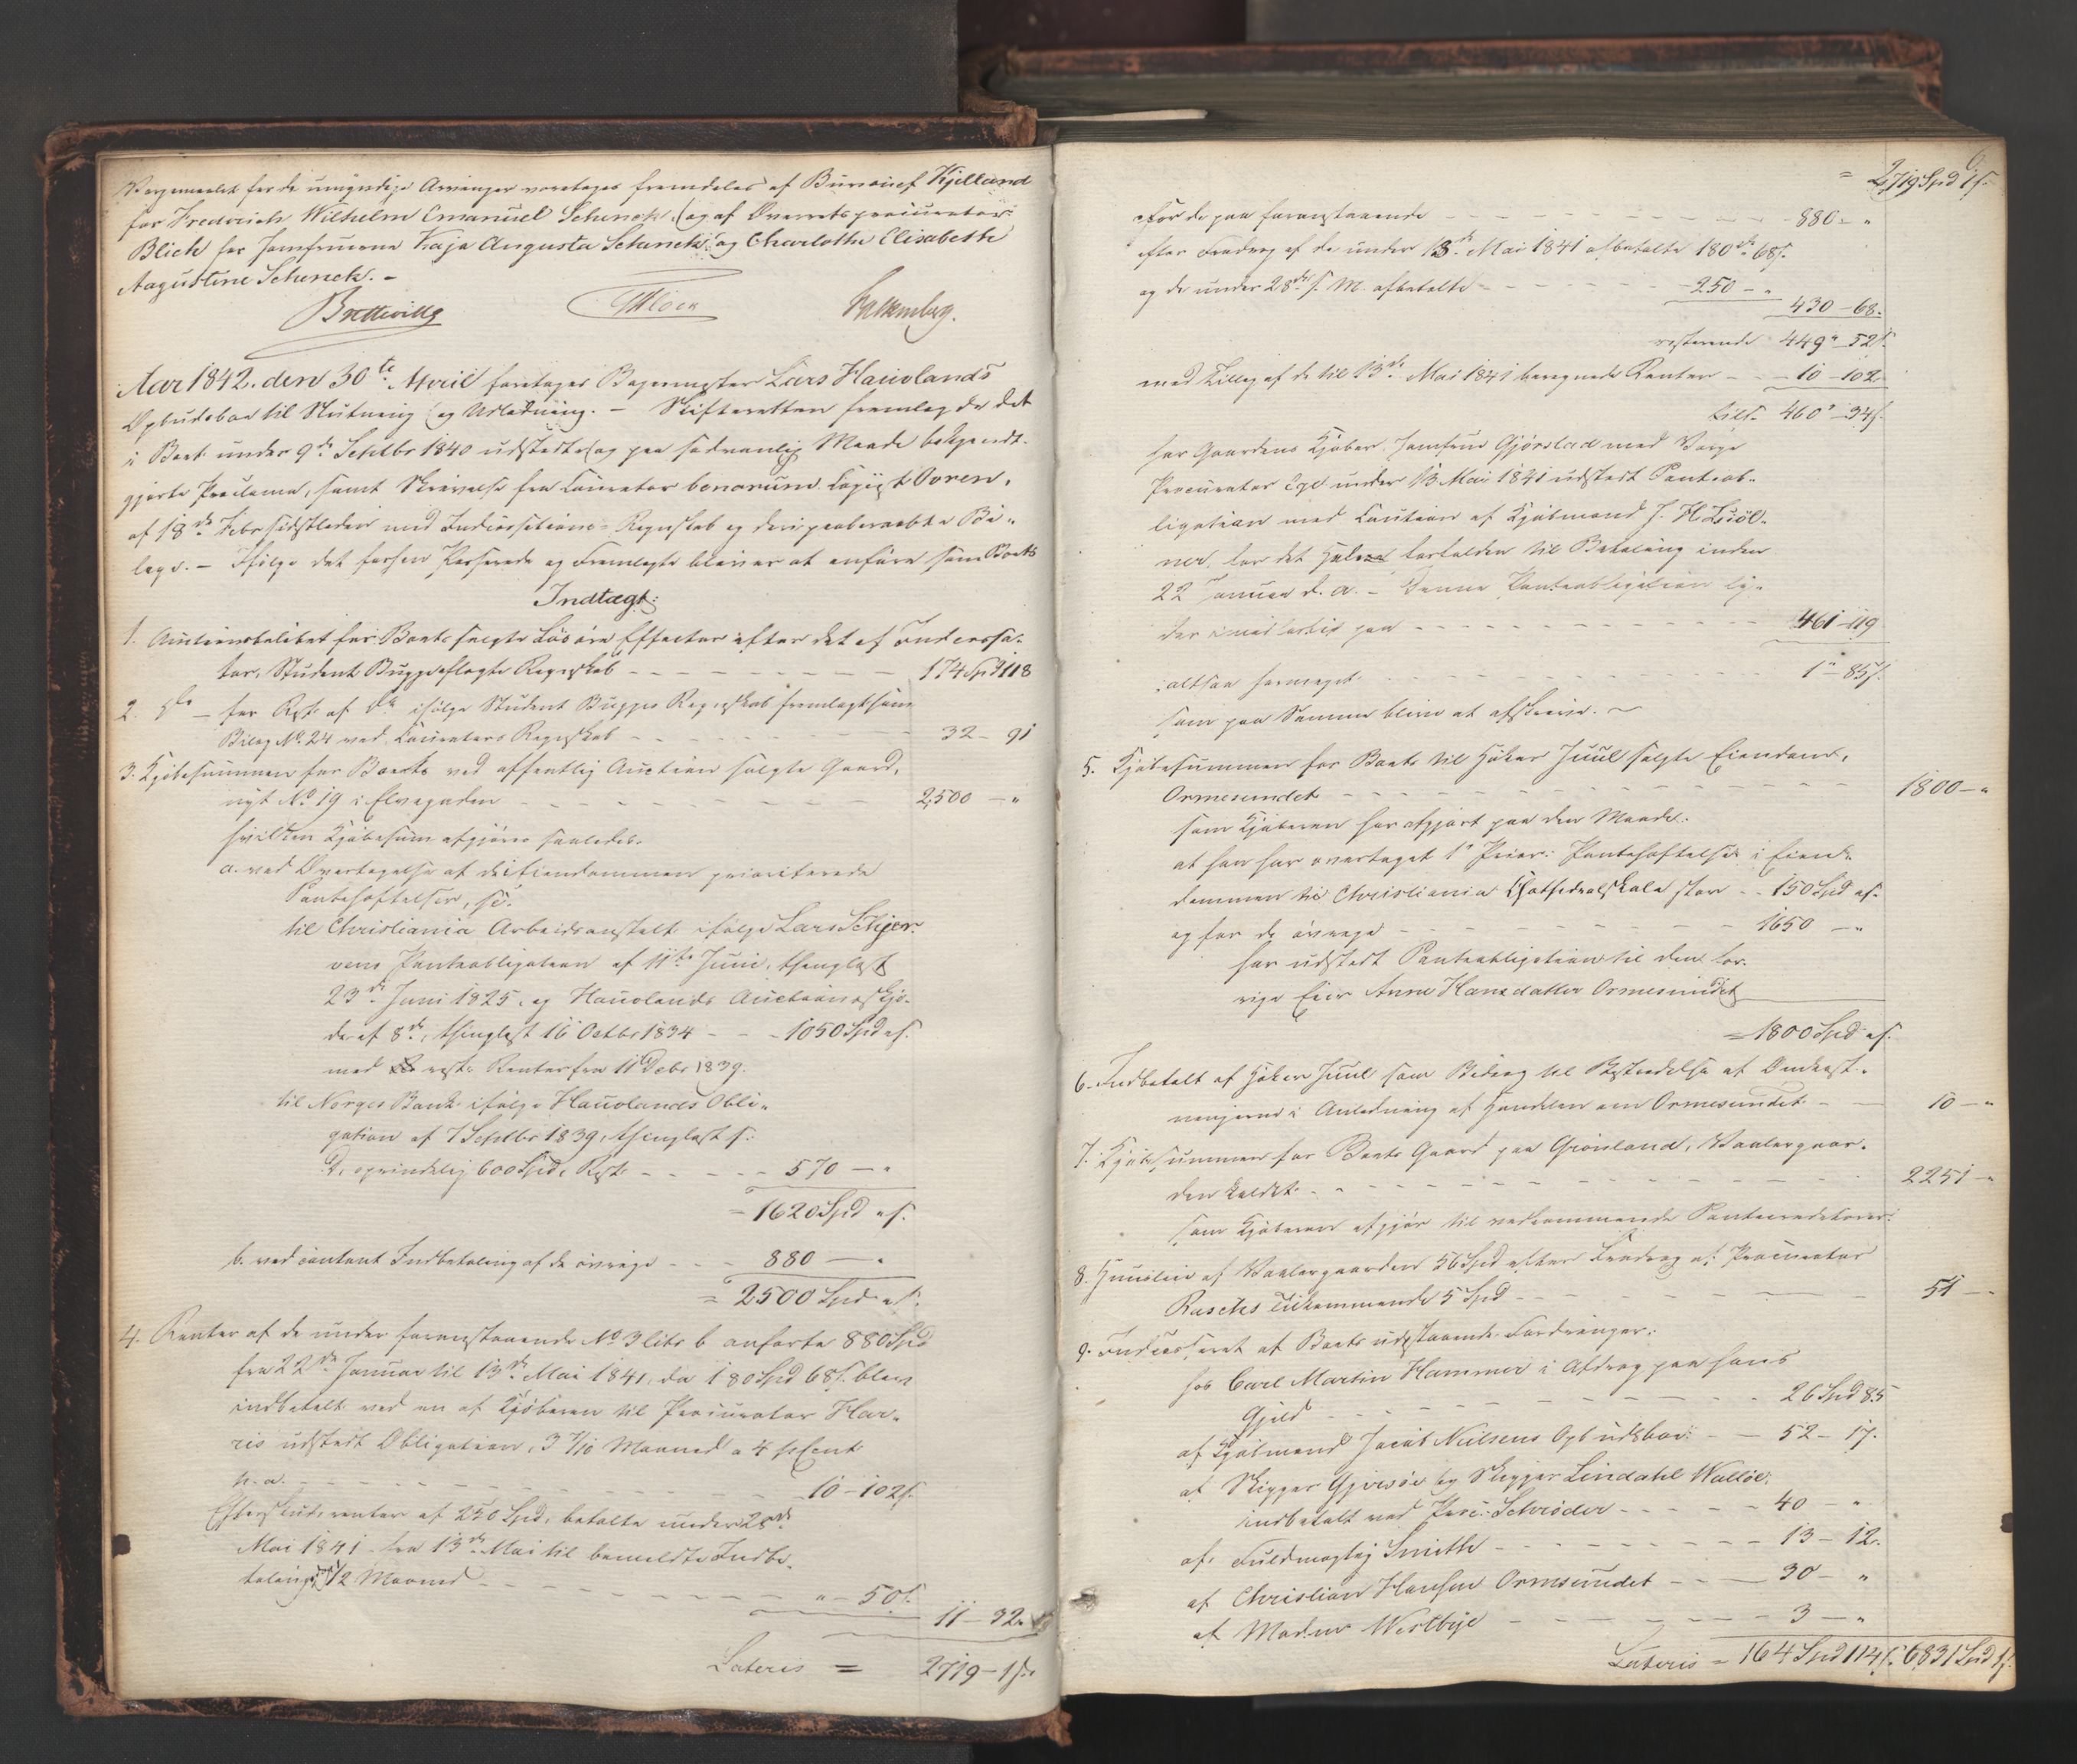 Værgemaalet for de umyndige Arvinger varetages fremdeles af Bureauchef Kjelland
for Fredrich Wilhelm Emanuel Schenck, og af Overretsprocurator
Blich for Jomfruerne Kaja Augusta Schenck og Charlotte Elisabeth
Augustine Schenck. –
Aar 1842. den 30te April foretoges Bagermester Lars Hauolands
Opbudsboe til Slutning og Udlodning. – Skifteretten fremlagde det
i Boet under 9de Septbr 1840 udstedte og paa sædvanlig Maade bekjendt-
gjorte Proclama, samt Skrivelse fra Curator bonorum
af 18de Febr sidstleden med Incassations-Regnskab og deri paaberaabte Bi-
lage. – Ifølge det forhen Passerede og Fremlagte bliver at anføre som Boets
Indtægt:
1. Auctionsbeløbet for Boets solgte Løsøre Effecter efter det af Incassa-
tor, Student Bugge aflagte Regnskab – – – 174 Spd 118
2. do – for Rest af do ifølge Student Bugges Regnskab fremlagt som
Bilag No. 24 ved Curators Regnskab – – – 32 – 91
3. Kjøbesummen for Boets ved offentlig Auction solgte Gaard,
nyt No 19 i Elvegaden – – – 2,500 – "
hvilken Kjøbesum afgjøres saaledes:
a. ved Overtagelse af de i Eiendommen prioriterede
Pantehæftelser, so:
til Christiania Arbeidsanstalt ifølge Lars Schjer-
vens Panteobligation af 11te Juni, thinglæst
23de Juni 1825. og Hauolands Auctionsskjø-
de af 8de, thinglæst 16 Octbr 1834 – – 1050 Spd " s.
med rest. Renter fra 11 Debr 1839.
til Norges Bank ifølge Hauolands Obli-
gation af 7 Septbr 1839, thinglæst s.
D, oprindelig 600 Spd, Rest – – – 570 – "
= 1620 Spd " s.
b. ved contant Indbetaling af de øvrige – – – 880 – "
= 2500 Spd " s.
4. Renter af de under foranstaaende No 3 litr b anførte 880 Spd
fra 22de Januar til 13de Mai 1841, da 180 Spd 68 s. blev
indbetalt ved en af Kjøberen til Procurator Har-
ris udstedt Obligation, 3 7/10 Maaned a 4 pCent
p. a. – – – 10 – 102 s.
Efterskuds renter af 250 Spd, betalte under 28de
Mai 1841 fra 13de Mai til bemeldte Indbe-
taling, 1/2 Maaned – – – " – 50 s.
11 – 32.
Lateris = 2719 – 1 s.
= 2719 Spd 1 s.
For de paa foranstaaende – – – 880 – "
efter Fradrag af de under 13de Mai 1841 afbetalte 180 – 68 s.
og de under 28de s. M. afbetalte – – – 250 – "
430 – 68.
resterende 449 – 52 s.
med Tillæg af de til 13de Mai 1841 beregnede Renter – – 10 – 102
tils. 460 – 34 s.
har Gaardens Kjøber Jomfrue Gjørstad med Værge
Procurator under 13 Mai 1841 udstedt Panteob-
ligation med Caution af Kjøbmand J. H.
for det Hele forfalden til Betaling inden
22 Januar d. a. – Denne Panteobligation ly-
der imidlertid paa – – – 461 – 119
altsaa formeget – – – 1 – 85 s.
som paa Samme blive at afskrive. –
5. Kjøbesummen for Boets til Høker Juul solgte Eiendom,
Ormesundet – – – 1800 – "
som Kjøberen har afgjort paa den Maade:
at han har overtaget 1ste Prior: Pantehæftelse i Eien-
dommen til Christiania Cathedralskole stor – – 150 Spd " s.
og for de øvrige – – – 1650 – "
har udstedt Panteobligation til den for-
rige Eier Anne Hansdatter Ormesundet
= 1800 Spd " s.
6. Indbetalt af Høker Juul som Bidrag til Bestridelse af Omkost-
ningerne i Anledning af Handelen om Ormesundet – – 10 – "
7. Kjøbesummen for Boets Gaard paa Grønland, Vaalergaar-
den kaldet – – – 2251 – "
som Kjøberen afgjør til vedkommende Panteereditorer.
8. Huusleie af Vaalergaarden 56 Spd efter Fradrag af Procurator
Raschs Tilkommende 5 Spd – – – 51 – "
9. Indcasseret af Boets udestaaende Fordringer:
hos Carl Martin Hammer i Afdrag paa hans
Gjæld – – – 26 Spd 85
af Kjøbmand Jacob Nielsens Opbudsboe – – 52 – 17.
af Skipper og Skipper Lindahl Walløe
indbetalt ved Proc: Schrøder – – – 40 – "
af Fuldmægtig Smith – – – 13 – 12.
af Christian Hansen Ormsundet – – 30 – "
af Madme Westbye – – – 3 – "
Lateris = 164 Spd 114 s. 6831 Spd 1 s.